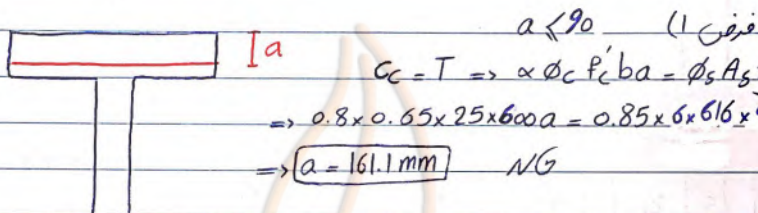 فرض 1) a ≤ 90
a
Cc = T => α ϕc f'c b a = ϕs As
=> 0.8 x 0.65 x 25 x 600 a = 0.85 x 6 x 616 x
=> a = 161.1 mm NG